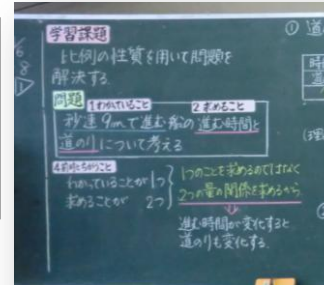 学習課題
比例の性質を用いて問題を
解決する。
問題 1わかっていること 2求めること
秒速9mで進む船の進む時間と
道のりについて考える
わかっていることが1つ
求めることが 2つ
1つのことを求めるのではなく
2つの量の関係を求めるから
進む時間が変化すると
道のりも変化する。
① 道